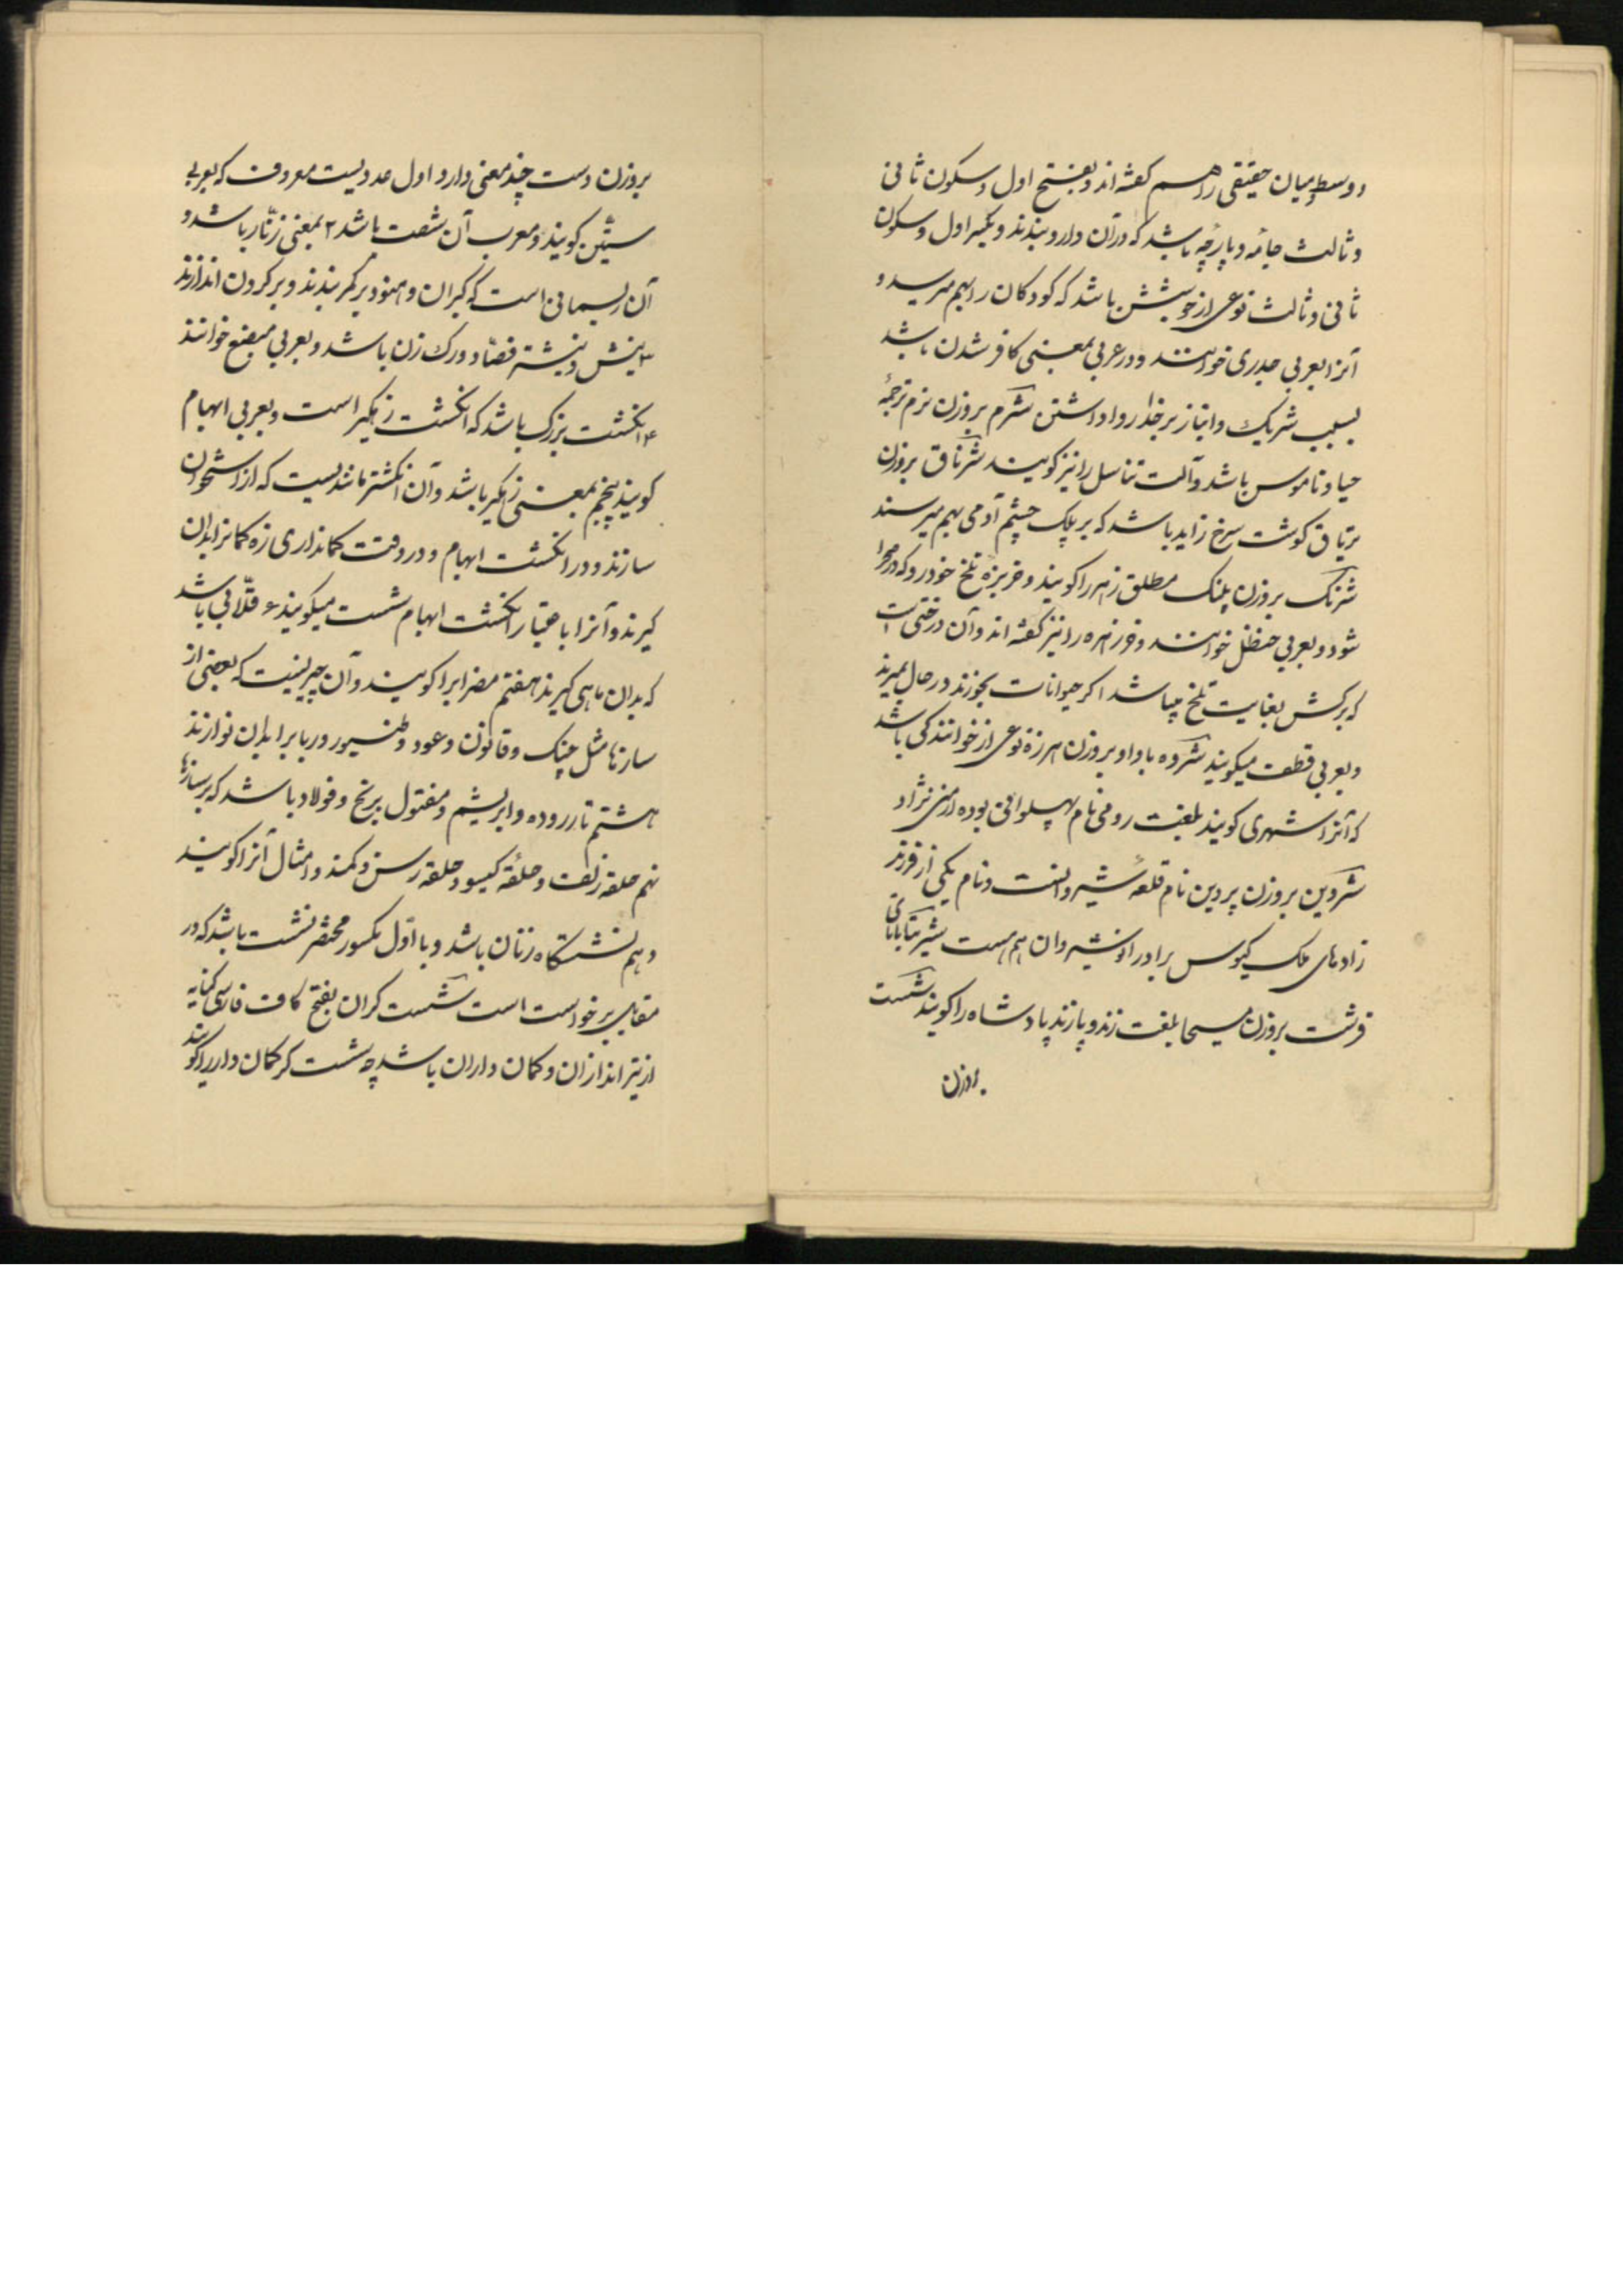 و وسط و میان حقیقی را هم گفته‌اند و بفتح اول و سکون ثانی
و ثالث جامه و پارچه باشد که در آن دارو بندند و بکسر اول و سکون
ثانی و ثالث نوعی از جوشش باشد که کودکان را بهم میرسد و
آنرا بعربی جدری خوانند و در عربی بمعنی کافر شدن باشد
بسبب شریک و انباز بر خدا روا داشتن شرم بروزن نرم ترجمهٔ
حیا و ناموس باشد و آلت تناسل را نیز کویند شرناق بروزن
تریاق کوشت سرخ زاید باشد که بر پلک چشم آدمی بهم میرسد
شرنک بروزن پلنک مطلق زهر را کویند و خربزه تلخ خودرو که در صحرا
شود و بعربی حنظل خوانند و خرزهره را نیز کفته‌اند و آن درختی است
که برکش بغایت تلخ میباشد اکر حیوانات بخورند در حال بمیرند
و بعربی قطف میکویند شروه با واو بروزن هرزه نوعی از خوانندکی باشد
که آنرا شهری کویند بلغت رومی نام پهلوانی بوده ارمنی نژاد
شروین بروزن پروین نام قلعهٔ شیروانست و نام یکی از فرزند
زادهای ملک کیوس برادر انوشیروان هم هست شیر بتا با تای
فرشت بروزن مسیحا بلغت زند و پازند پادشاه را کویند شست
بروزن
بروزن دست چند معنی دارد اول عددیست معروف که بعربی
ستین کویند و معرب آن شصت باشد ۲ بمعنی زنّار باشد و
آن ریسمانی است که کبران و هنود بر کمر بندند و بر کردن اندازند
۳ نیش و نیشتر فصّاد و رک زن باشد و بعربی مبضع خوانند
۴ انکشت بزرک باشد که انکشت زهکیر است و بعربی ابهام
کویند پنجم بمعنی زهکیر باشد و آن انکشتر مانندیست که از استخوان
سازند و در انکشت ابهام و در وقت کمانداری زه کمانرا بدان
کیرند و آنرا باعتبار انکشت ابهام شست میکویند ۶ قلّابی باشد
که بدان ماهی کیرند هفتم مضرابرا کویند و آن چیزیست که بعضی از
سازها مثل چنک و قانون و عود و طنبور و ربابرا بدان نوازند
هشتم تار روده و ابریشم و مفتول برنج و فولاد باشد که بر سازها
نهم حلقه زلف و حلقه کیسو و حلقه رسن و کمند و امثال آنرا کویند
دهم نشستگاه زنان باشد و با اوّل مکسور مخفف نشست باشد که در
مقابل برخواست است شست کران بفتح کاف فارسی کنایه
از تیر اندازان و کمان داران باشد چه شست کر کمان دار را کویند